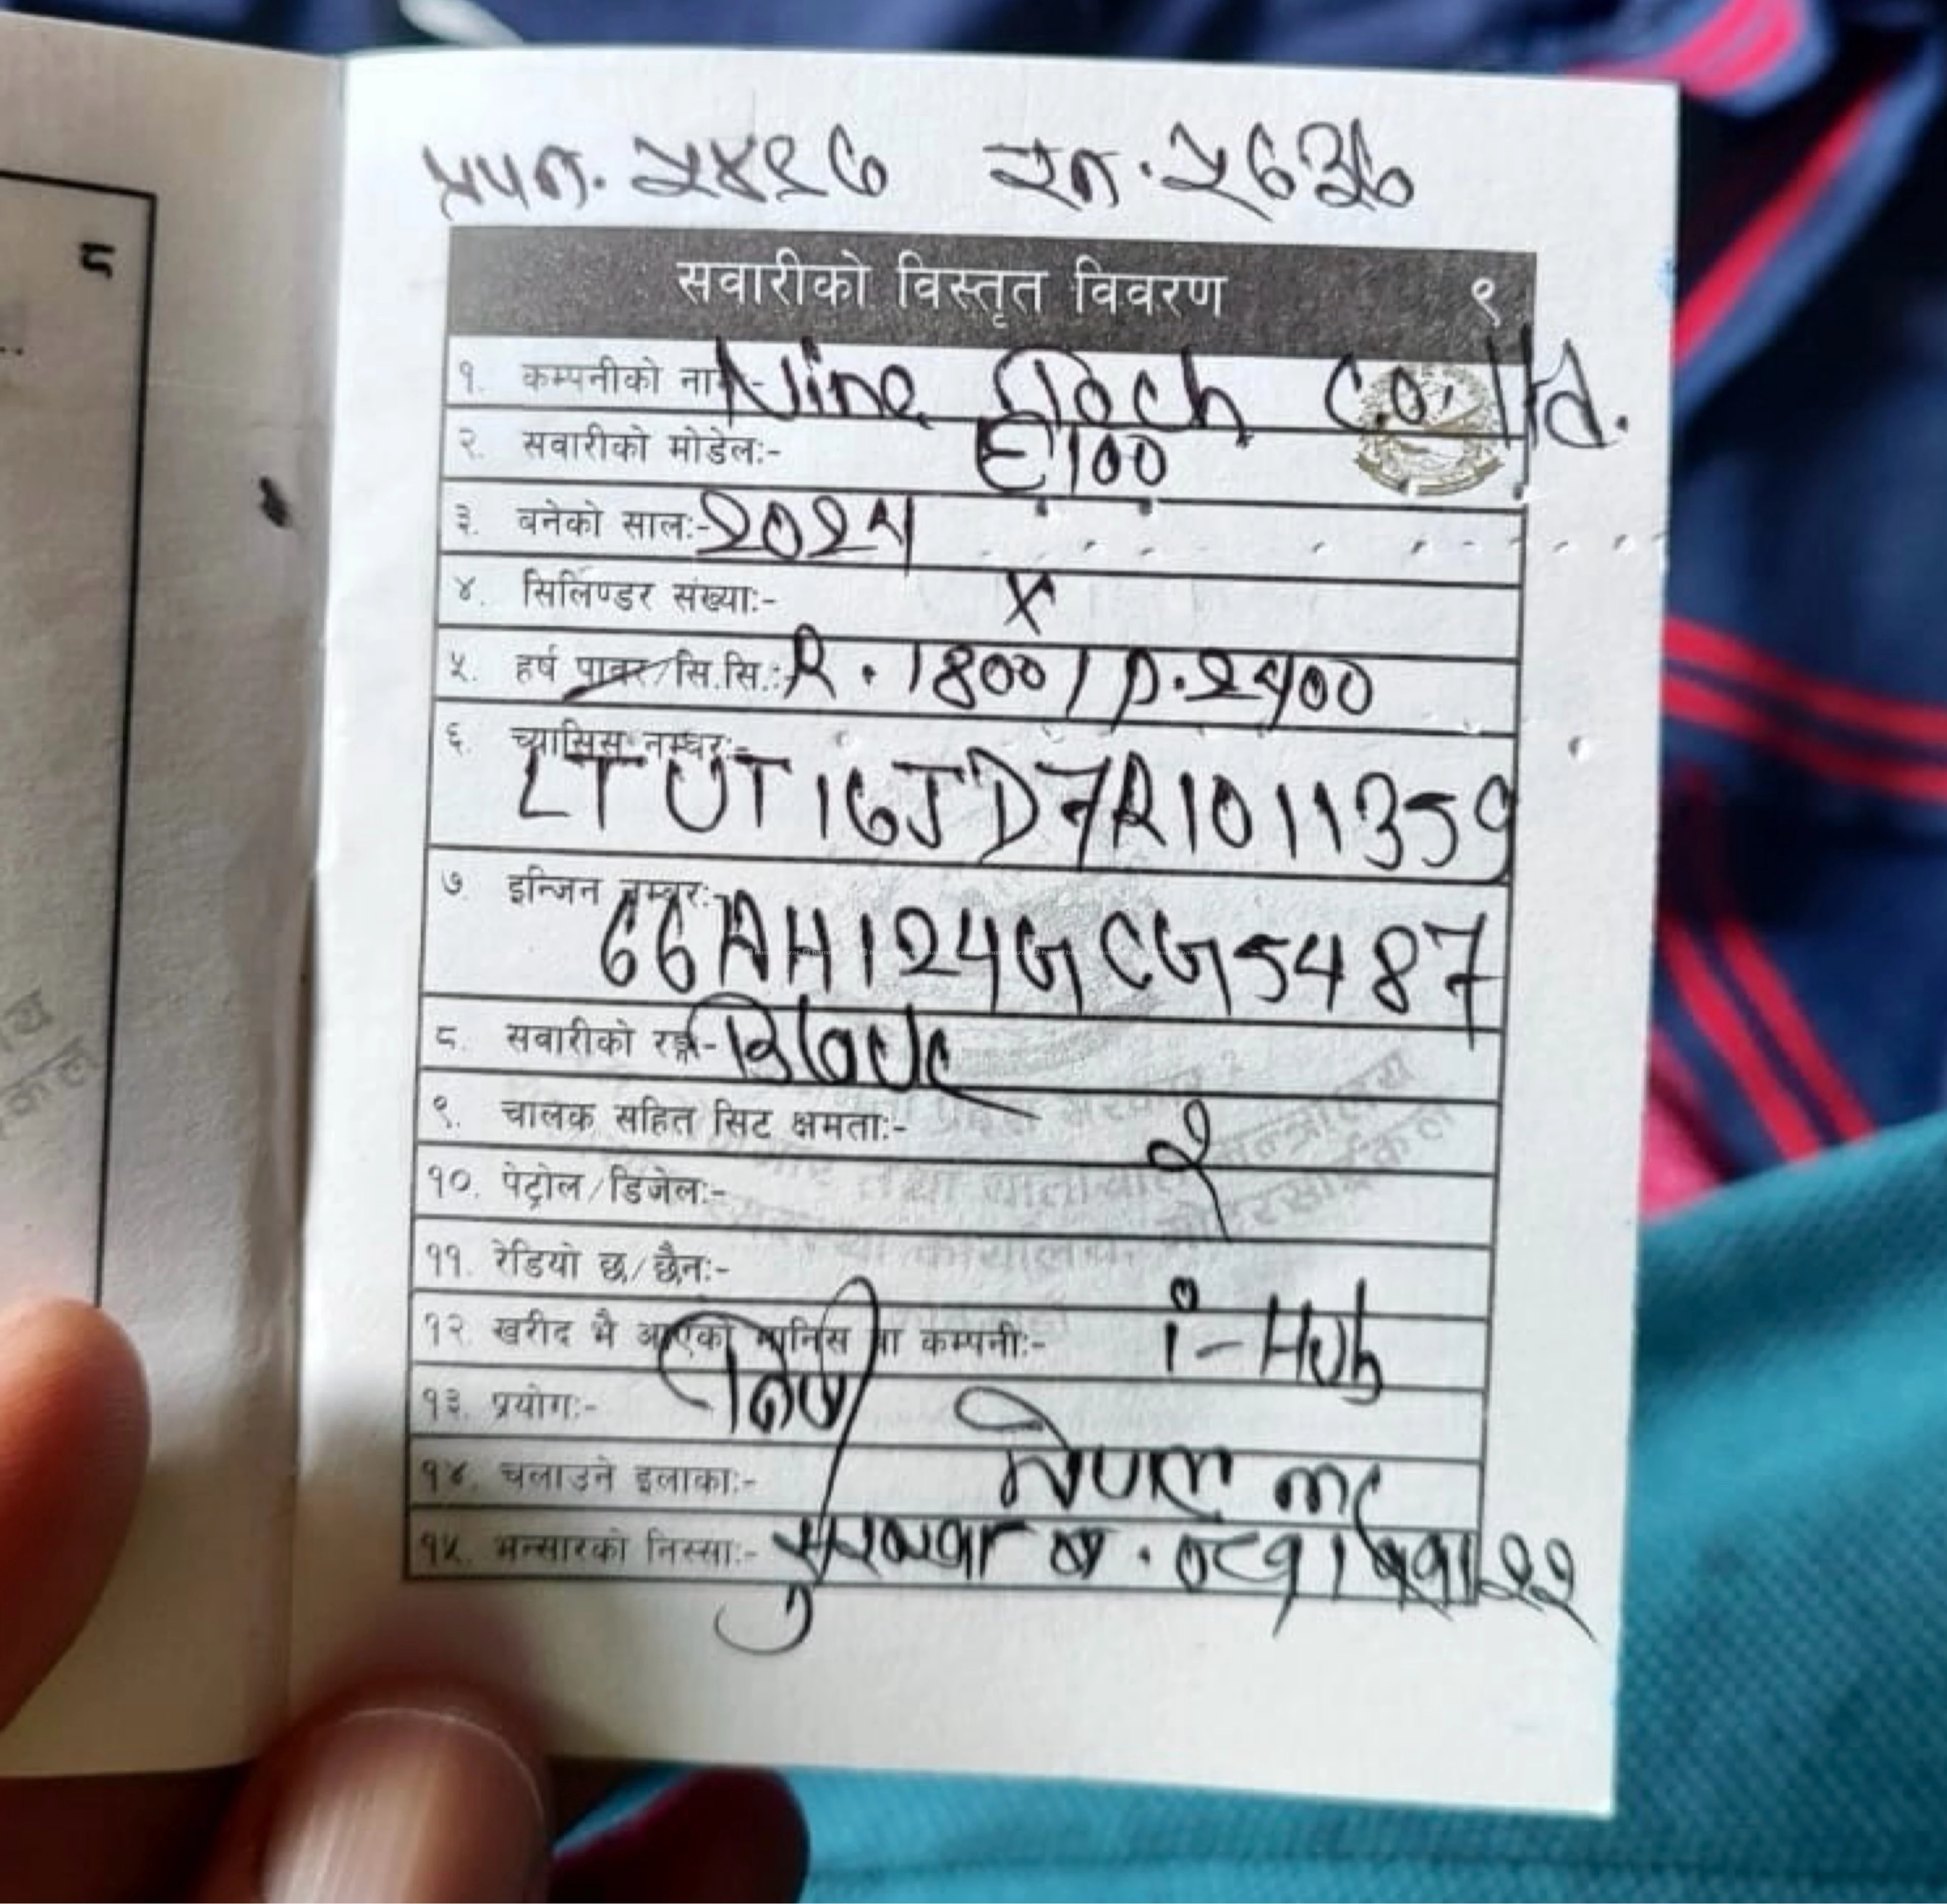 प्रपन. २४९७ रन. २६३७
सवारीको विस्तृत विवरण ९
१. कम्पनीको नाम:- Nine Tech Co. Ltd.
२. सवारीको मोडेल:- E100
३. बनेको साल:- 2024
४. सिलिण्डर संख्या:- X
५. हर्ष पावर/सि.सि.:- R. 1800/ P. 2400
६. च्यासिस नम्बर:-
LTUT16JD7R1011359
७ इन्जिन नम्बर:-
66AH124GCG5487
८. सवारीको रङ्ग:-
९. चालक सहित सिट क्षमता:- २
१०. पेट्रोल/डिजेल:-
११. रेडियो छ/छैन:-
१२. खरीद भै आएको मानिस वा कम्पनी:- i-Hub
१३. प्रयोग:- निजी
१४. चलाउने इलाका:- नेपाल
१५. भन्सारको निस्सा:-